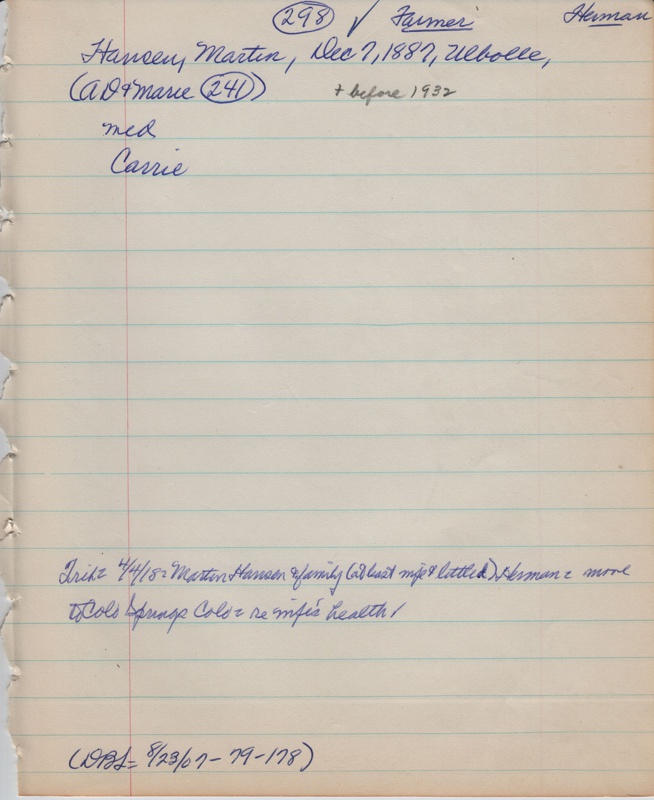 298 ✓ Farmer Herman
Hansen, Martin, Dec 7, 1887, Ulbolle,
(AD & Marie 241)
+ before 1932
med
Carrie
Trib = 4/4/18 = Martin Hansen & family (at least wife & little d) Herman = move
to Colo Springs Colo = re wife's health
(DBL = 8/23/07 - 79-178)